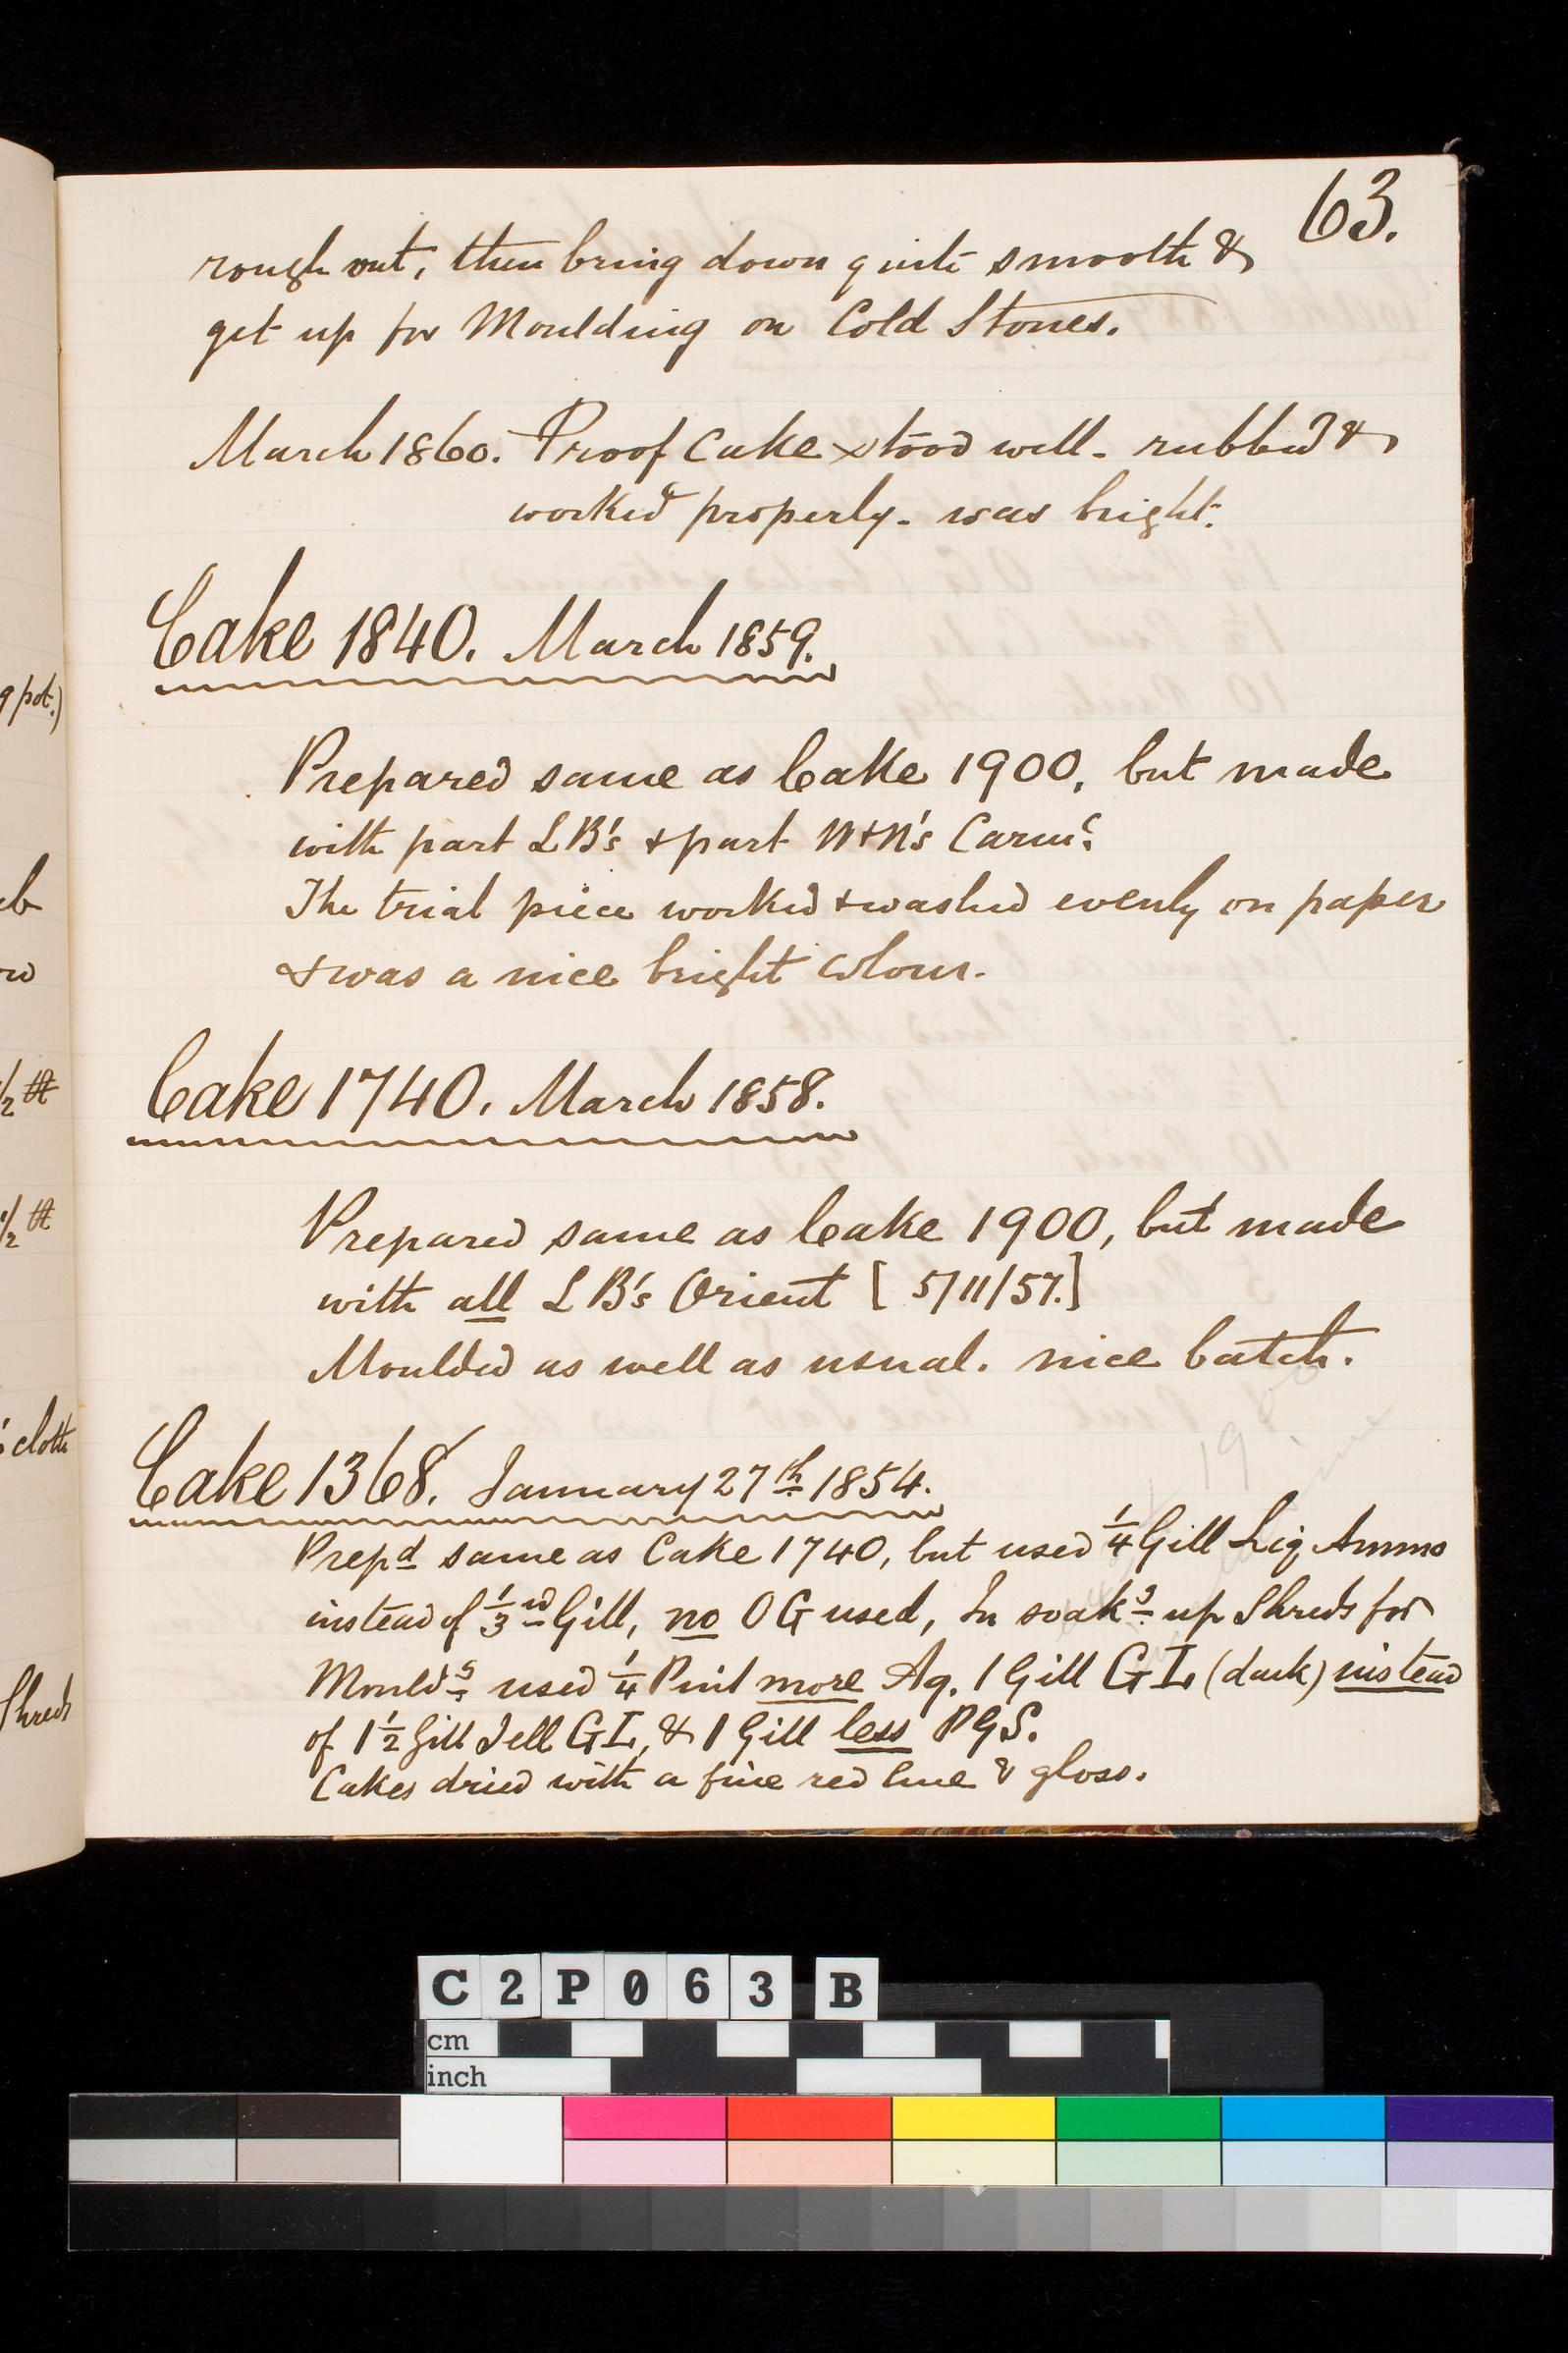 63.
rough out, then bring down quite smooth &
get up for Moulding on Cold Stones.
March 1860. Proof Cake stood well - rubbed &
worked properly - was bright.
Cake 1840. March 1859.
Prepared same as Cake 1900, but made
with part LB's & part W+N's Carmᵉ
The trial piece worked & washed evenly on paper
& was a nice bright colour.
Cake 1740. March 1858.
Prepared same as Cake 1900, but made
with all LB's Orient [5/11/57.]
Moulded as well as usual. nice batch.
Cake 1368. January 27th 1854.
Prepd same as Cake 1740, but used 1/4 Gill Liq Ammo
instead of 1/3rd Gill, no OG used, In soakg up Shreds for
Mouldg used 1/4 Pint more Aq. 1 Gill GI (dark) instead
of 1 1/2 Gill Jell GI, & 1 Gill less PGS.
Cakes dried with a fine red hue & gloss.
g pot.)
1/2 lb
1/2 lb
cloth
Shreds
C2P063 B
cm
inch